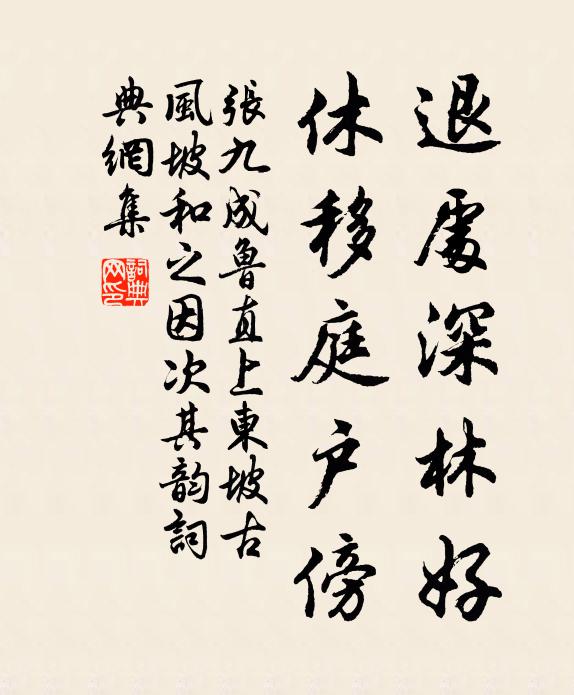 退處深林好
休移庭户傍
張九成魯直上東坡古
風坡和之因次其韵詞
典網集
詞典
网印